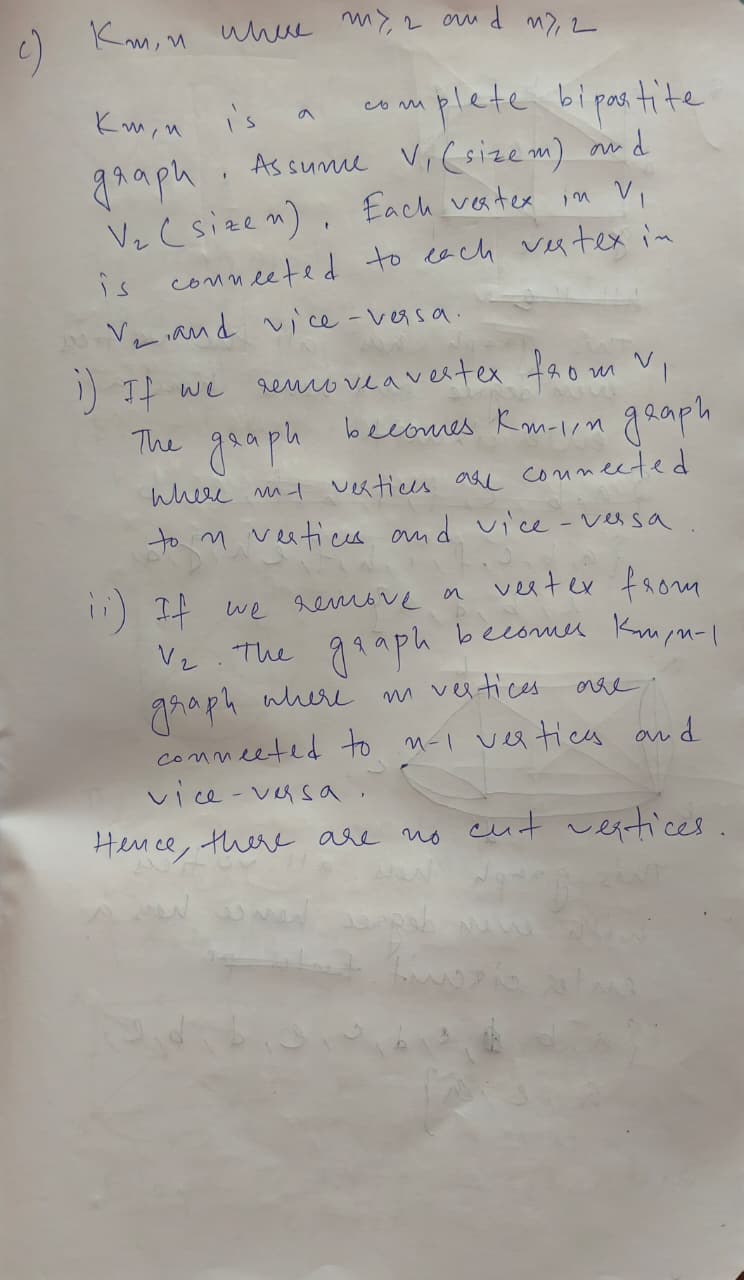 c) Km,n where m≥2 and n≥2
Km,n is a complete bipartite
graph. Assume V1 (size m) and
V2 (size n). Each vertex in V1
is connected to each vertex in
V2 and vice-versa.
i) If we remove a vertex from V1
The graph becomes Km-1,n graph
where m-1 vertices are connected
to n vertices and vice-versa.
ii) If we remove a vertex from
V2. The graph becomes Km,n-1
graph where m vertices are
connected to n-1 vertices and
vice-versa.
Hence, there are no cut vertices.